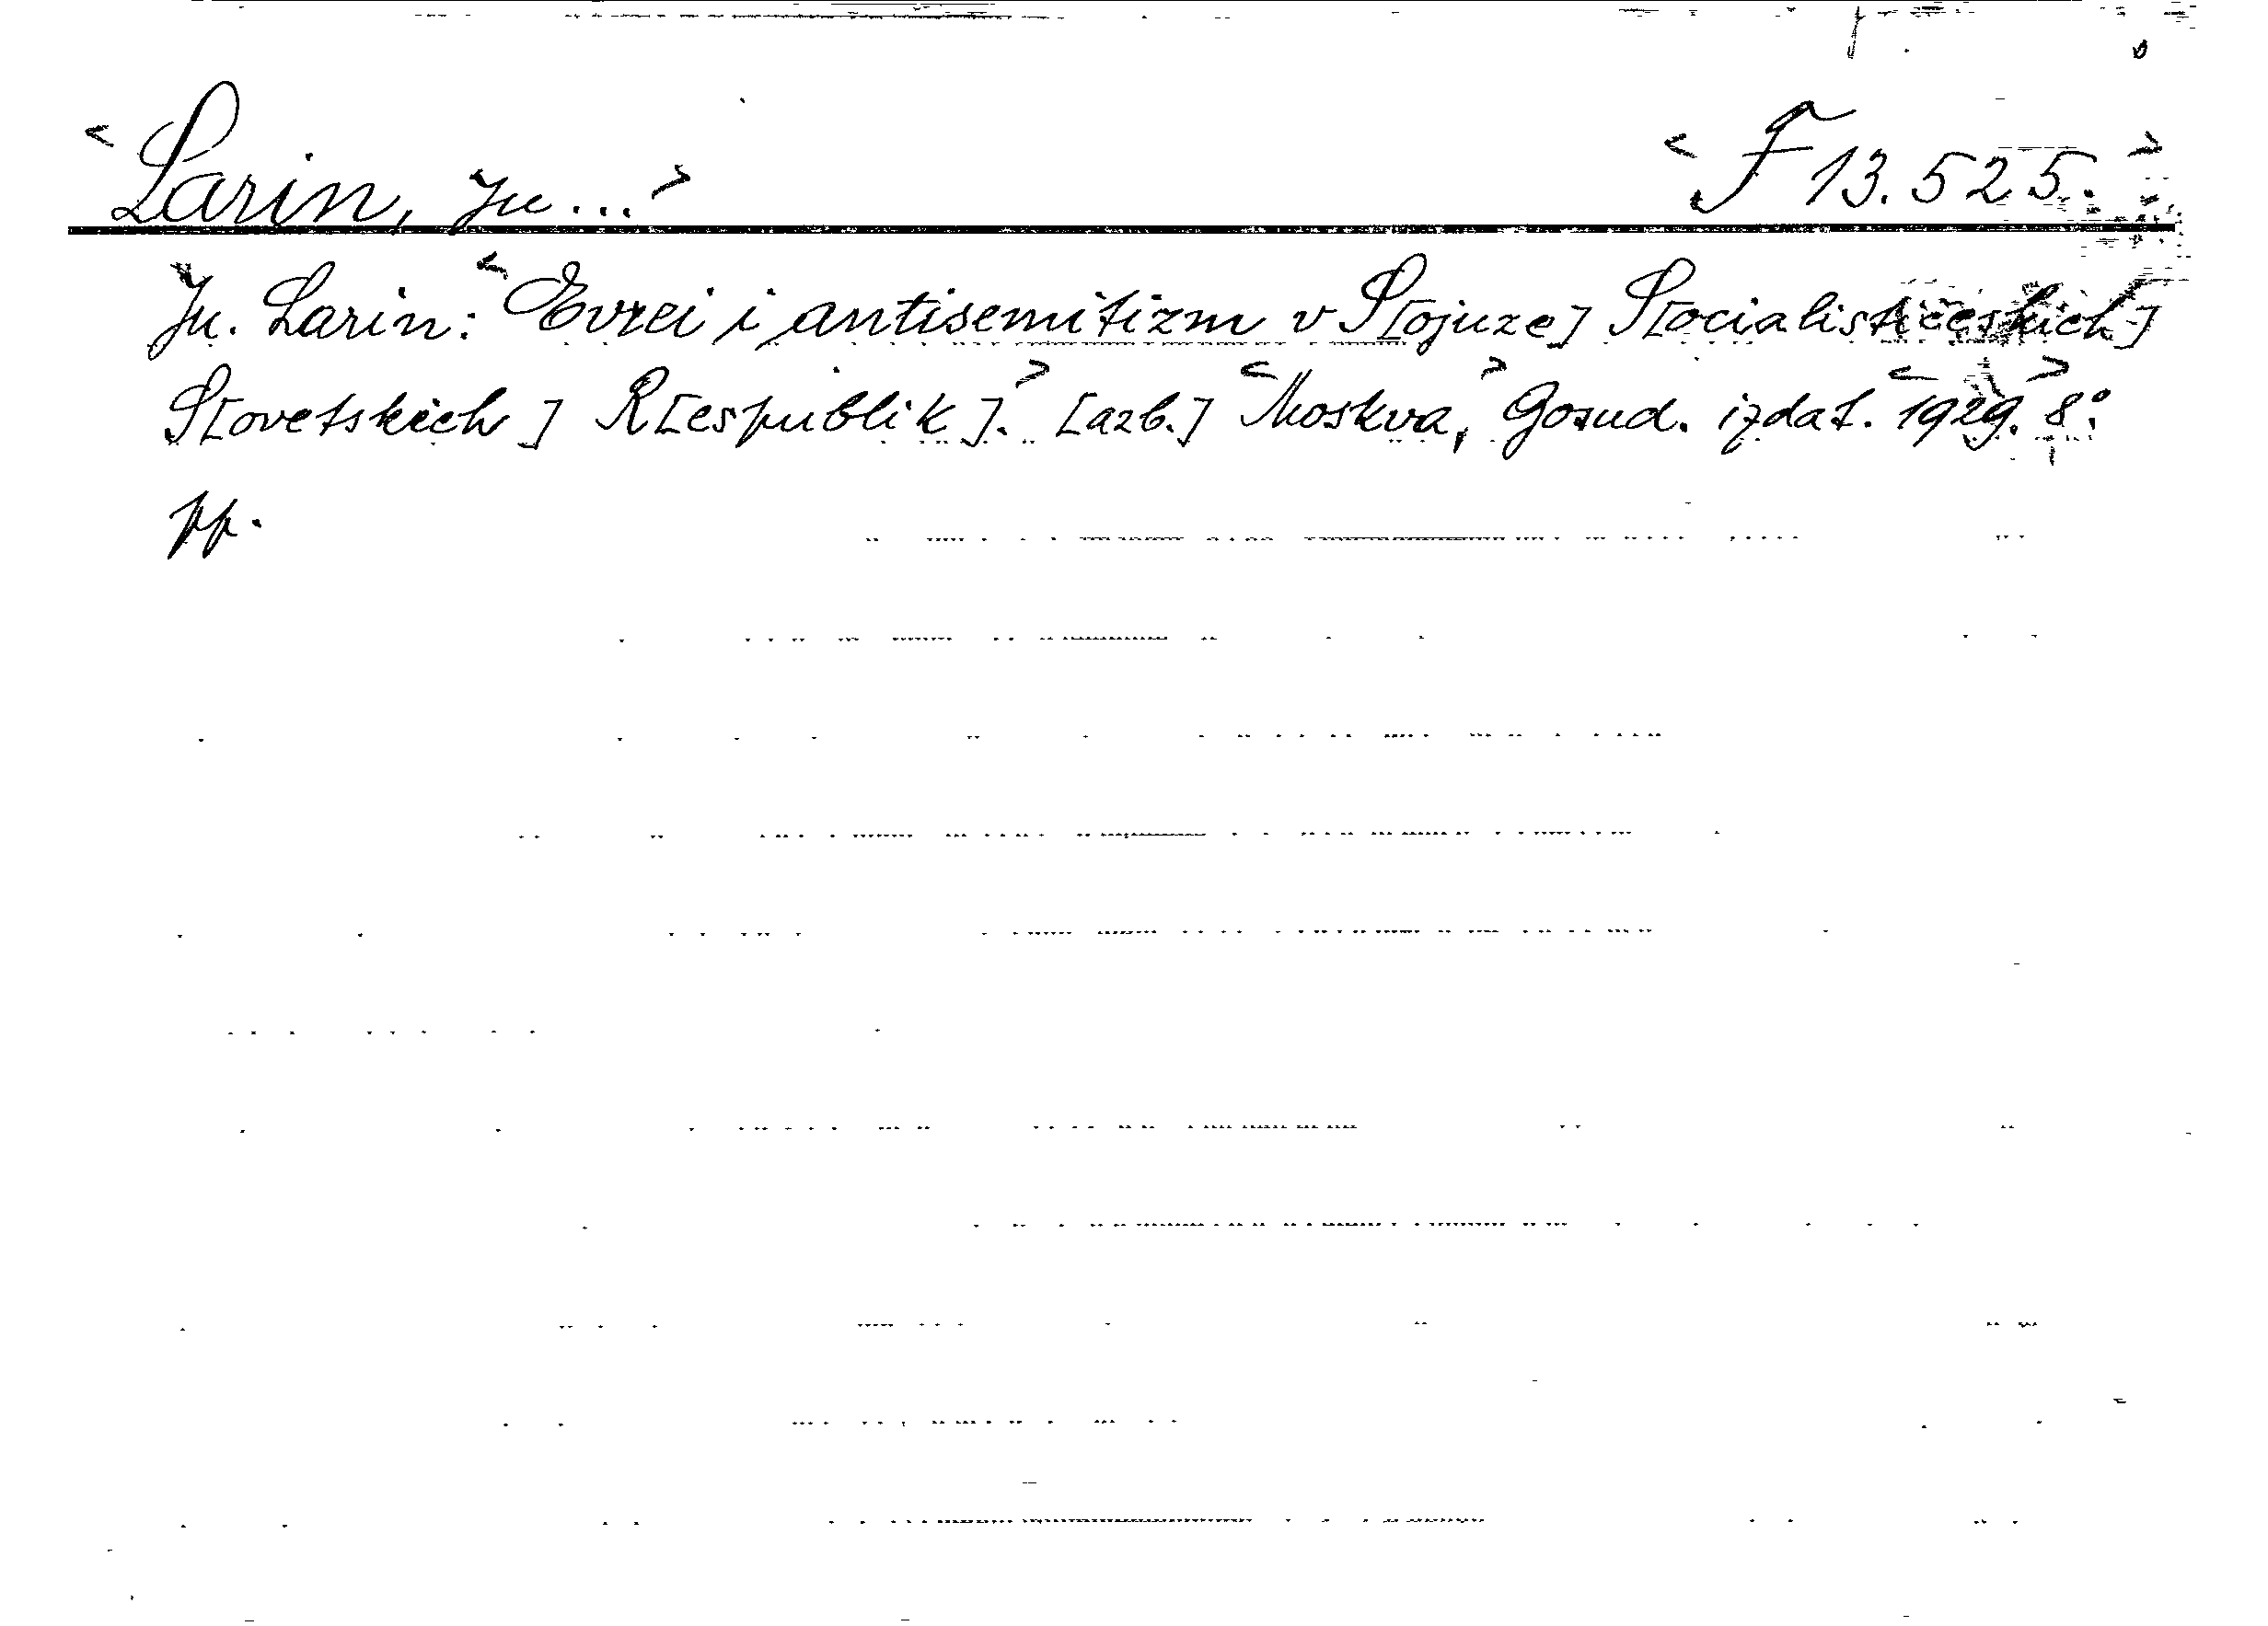 <Larin, Ju...> <F 13.525.>
Ju. Larin: <Evrei i antisemitizm v S[ojuze] S[ocialističeskich]
S[ovetskich] R[espublik].> [azb.] <Moskva,> Gosud. izdat. <1929.> 8°.
pp.